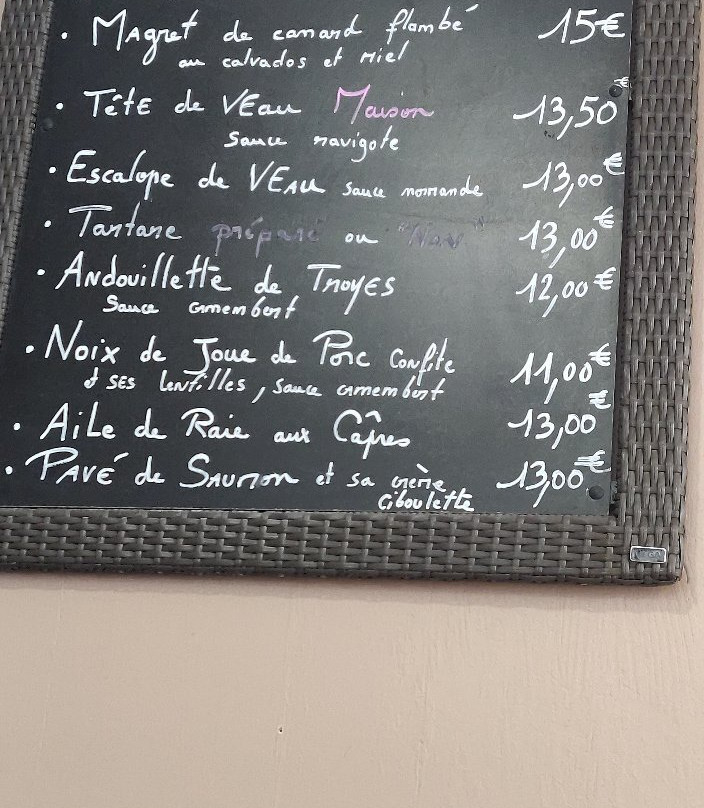 • Magret de canard flambé 15€
au calvados et Miel
• Tête de Veau Maison 13,50€
Sauce ravigote
• Escalope de Veau sauce normande 13,00€
• Tartare préparé ou "Non" 13,00€
• Andouillette de Troyes 12,00€
Sauce camembert
• Noix de Joue de Porc Confite 11,00€
et ses lentilles, sauce camembert
• Aile de Raie aux Câpres 13,00€
• Pavé de Saumon et sa crème 13,00€
Ciboulette